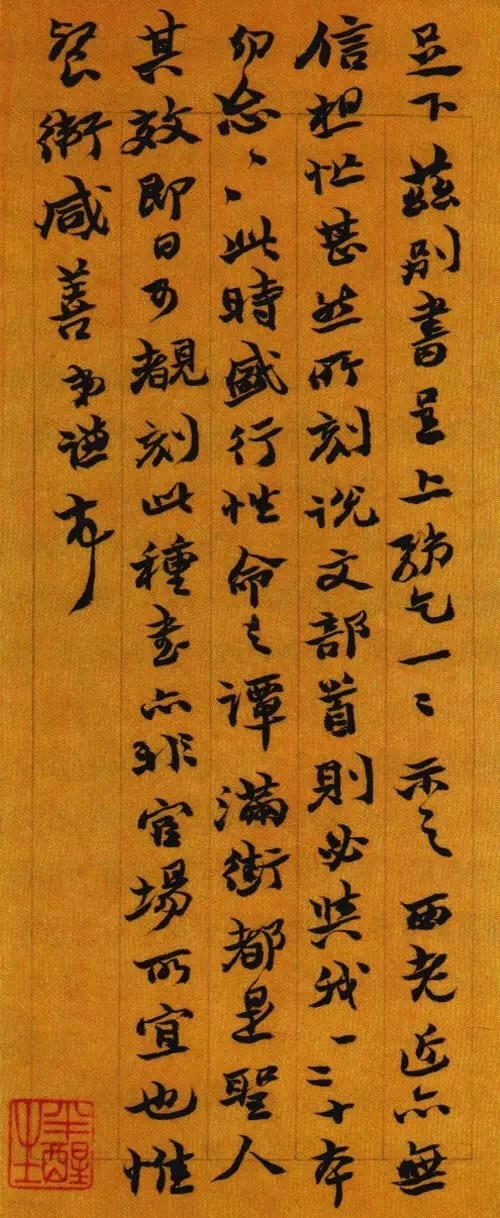 足下茲別書呈上務乞一〻示之西老近亦無
信想忙甚然所刻說文部首則必與我一二十本
勿忘〻〻此時盛行性命之譚滿街都是聖人
其效即日可覩刻此種書亦非官場所宜也惟
餐衛咸善弟謙
半醒